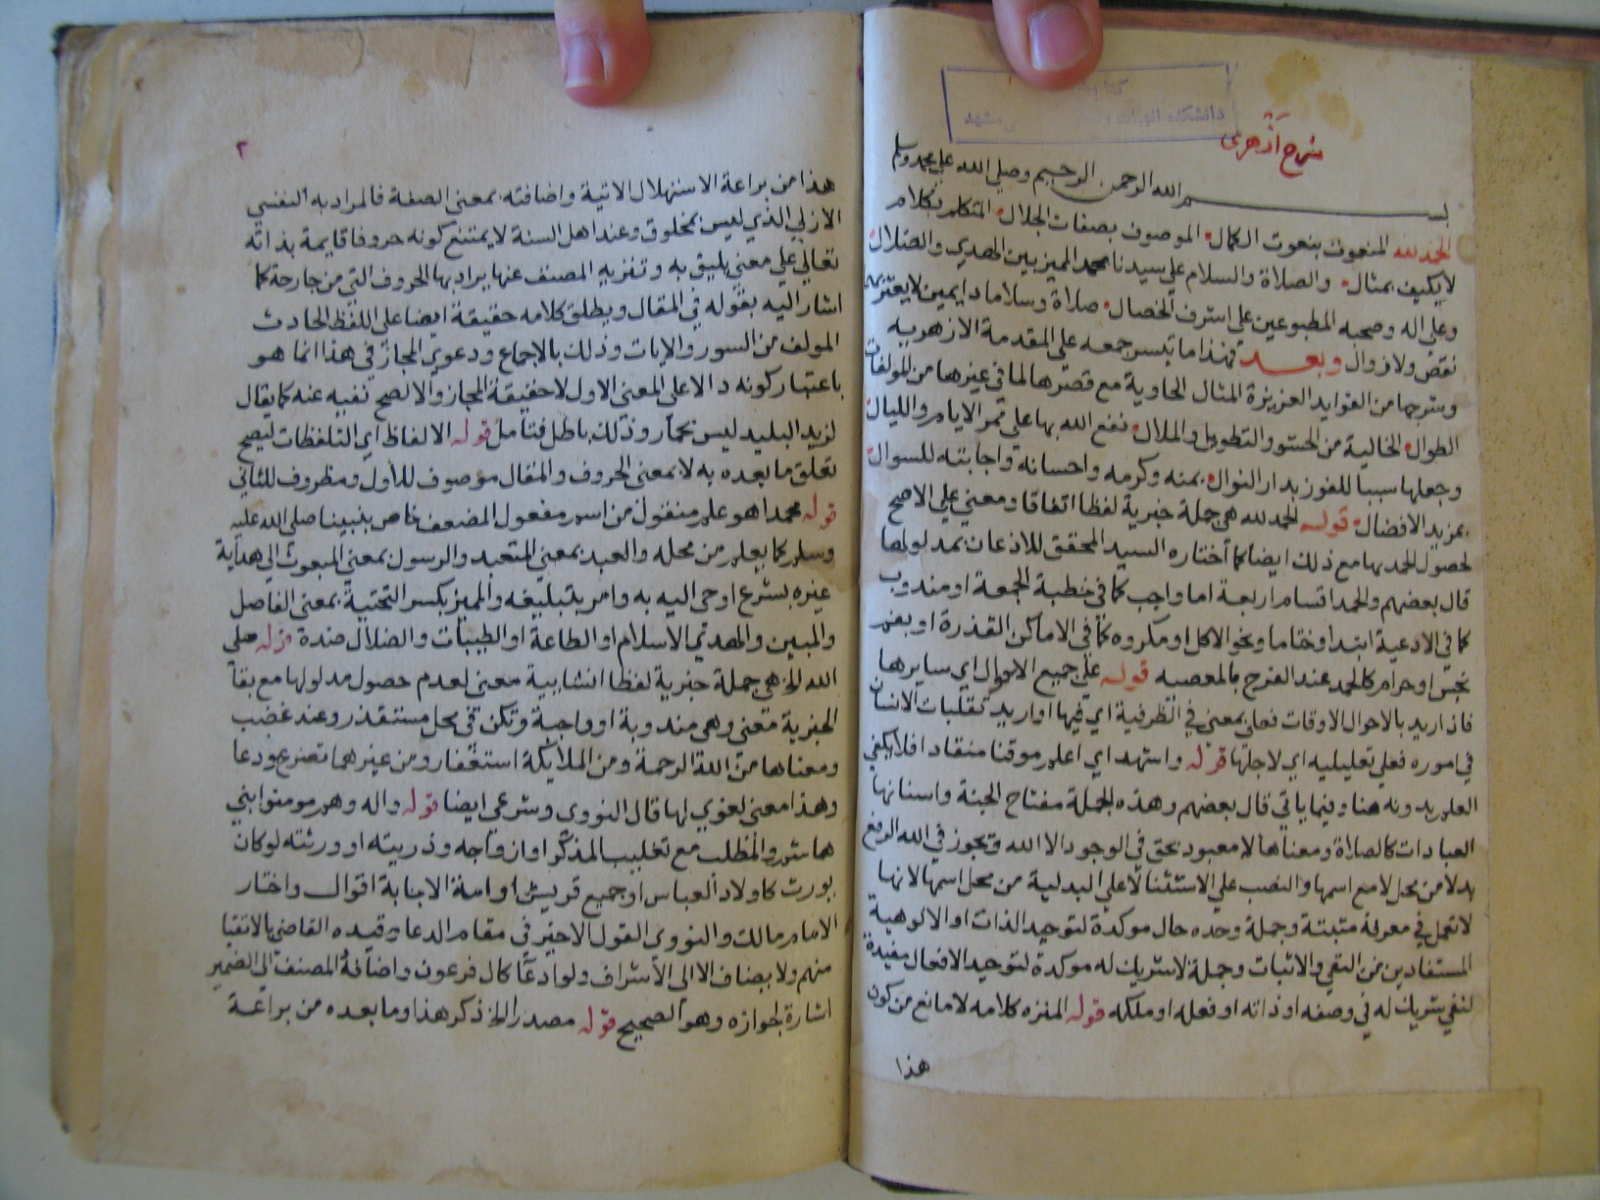 شرح أزهرى
بسم الله الرحمن الرحيم وصلى الله على محمد وسلم
الحمد لله المنعوت بنعوت الكمال الموصوف بصفات الجلال المتكلم بكلام
لا يكيف بمثال والصلاة والسلام على سيدنا محمد المميز بين الهدي والضلال
وعلى اله وصحبه المطبوعين على اشرف الخصال صلاة وسلاما دايمين لا يعتريهما
نقص ولا زوال وبعد فهذا ما تيسر جمعه على المقدمة الازهريه
وشرحها من الفوايد العزيزة المثال الحاوية مع قصرها لما في غيرها من المولفات
الطوال الخالية من الحشو والتطويل والملال نفع الله بها على ممر الايام والليال
وجعلها سببا للفوز بدار النوال بمنه وكرمه واحسانه واجابته للسوال
بمزيد الافضال قوله الحمد لله هي جملة خبرية لفظا اتفاقا ومعني على الاصح
لحصول الحمد بها مع ذلك ايضا كما اختاره السيد المحقق للاذعان بمدلولها
قال بعضهم والحمد اقسام اربعة اما واجب كما في خطبة الجمعة او مندوب
كما في الادعية ابتدا وختاما ونحو الاكل او مكروه كما في الاماكن القذرة او بفم
نجس او حرام كالحمد عند الفرح بالمعصيه قوله على جميع الاحوال اي سايرها
فاذا اريد بالاحوال الاوقات فعلى بمعنى في الظرفية اي فيها او اريد تقلبات الانسان
في اموره فعلى تعليليه اي لاجلها قوله واشهد اي اعلم موقنا منقادا فلا يكفي
العلم بدونه هنا وفيما ياتي قال بعضهم وهذه الجملة مفتاح الجنة واسنانها
العبادات كالصلاة ومعناها لا معبود بحق في الوجود الا الله ويجوز في الله الرفع
بدلا من محل لا مع اسمها والنصب على الاستثنا لا على البدلية من محل اسمها لانها
لا تعمل في معرفة مثبتة وجملة وحده حال موكدة لتوحيد الذات او الالوهية
المستفادين من النفي والاثبات وجملة لا شريك له موكدة لتوحيد الافعال مفيدة
لنفي شريك له في وصفه او ذاته او فعله او ملكه قوله المنزه كلامه لا مانع من كون
هذا
٢
هذا من براعة الاستهلال الاتية واضافته بمعنى الصفة فالمراد به النفسي
الازلي الذي ليس بمخلوق وعند اهل السنة لا يمتنع كونه حروفا قايمة بذاته
تعالى على معنى يليق به وتنزيه المصنف عنها يراد بها الحروف التي من جارحة كما
اشار اليه بقوله في المقال ويطلق كلامه حقيقة ايضا على اللفظ الحادث
المولف من السور والايات وذلك بالاجماع ودعوي المجاز في هذا انما هو
باعتبار كونه دالا على المعنى الاول لا حقيقة المجاز والا لصح نفيه عنه كما يقال
لزيد البليد ليس بحمار وذلك باطل فتامل قوله الالفاظ اي التلفظات ليصح
تعلق ما بعده به لا بمعنى الحروف والمقال موصوف للاول ومظروف للثاني
قوله محمدا هو علم منقول من اسم مفعول المضعف خاص بنبينا صلى الله عليه
وسلم كما يعلم من محله والعبد بمعنى المتعبد والرسول بمعنى المبعوث الى هداية
غيره بشرع اوحى اليه به وامر بتبليغه والمميز بكسر التحتية بمعنى الفاصل
والمبين والهدي الاسلام او الطاعة او الطيبات والضلال ضدة قوله صلى
الله الخ هي جملة خبرية لفظا انشايية معنى لعدم حصول مدلولها مع بقا
الخبرية معنى وهي مندوبة او واجبة وتكره في محل مستقذر وعند غضب
ومعناها من الله الرحمة ومن الملايكة استغفار ومن غيرهما تضرع ودعا
وهذا معنى لغوي لها قال النووى وشرعى ايضا قوله واله وهم مومنوا بني
هاشم والمطلب مع تغليب المذكر او ازواجه وذريته او ورثته لو كان
يورث كاولاد العباس او جميع قريش او امة الاجابة اقوال واختار
الامام مالك والنووى القول الاخير في مقام الدعا وقيده القاضى بالاتقيا
منهم ولا يضاف الا الى الاشراف ولو ادعا كال فرعون واضافة المصنف الى الضمير
اشارة لجوازه وهو الصحيح قوله مصدر الخ ذكر هذا وما بعده من براعة